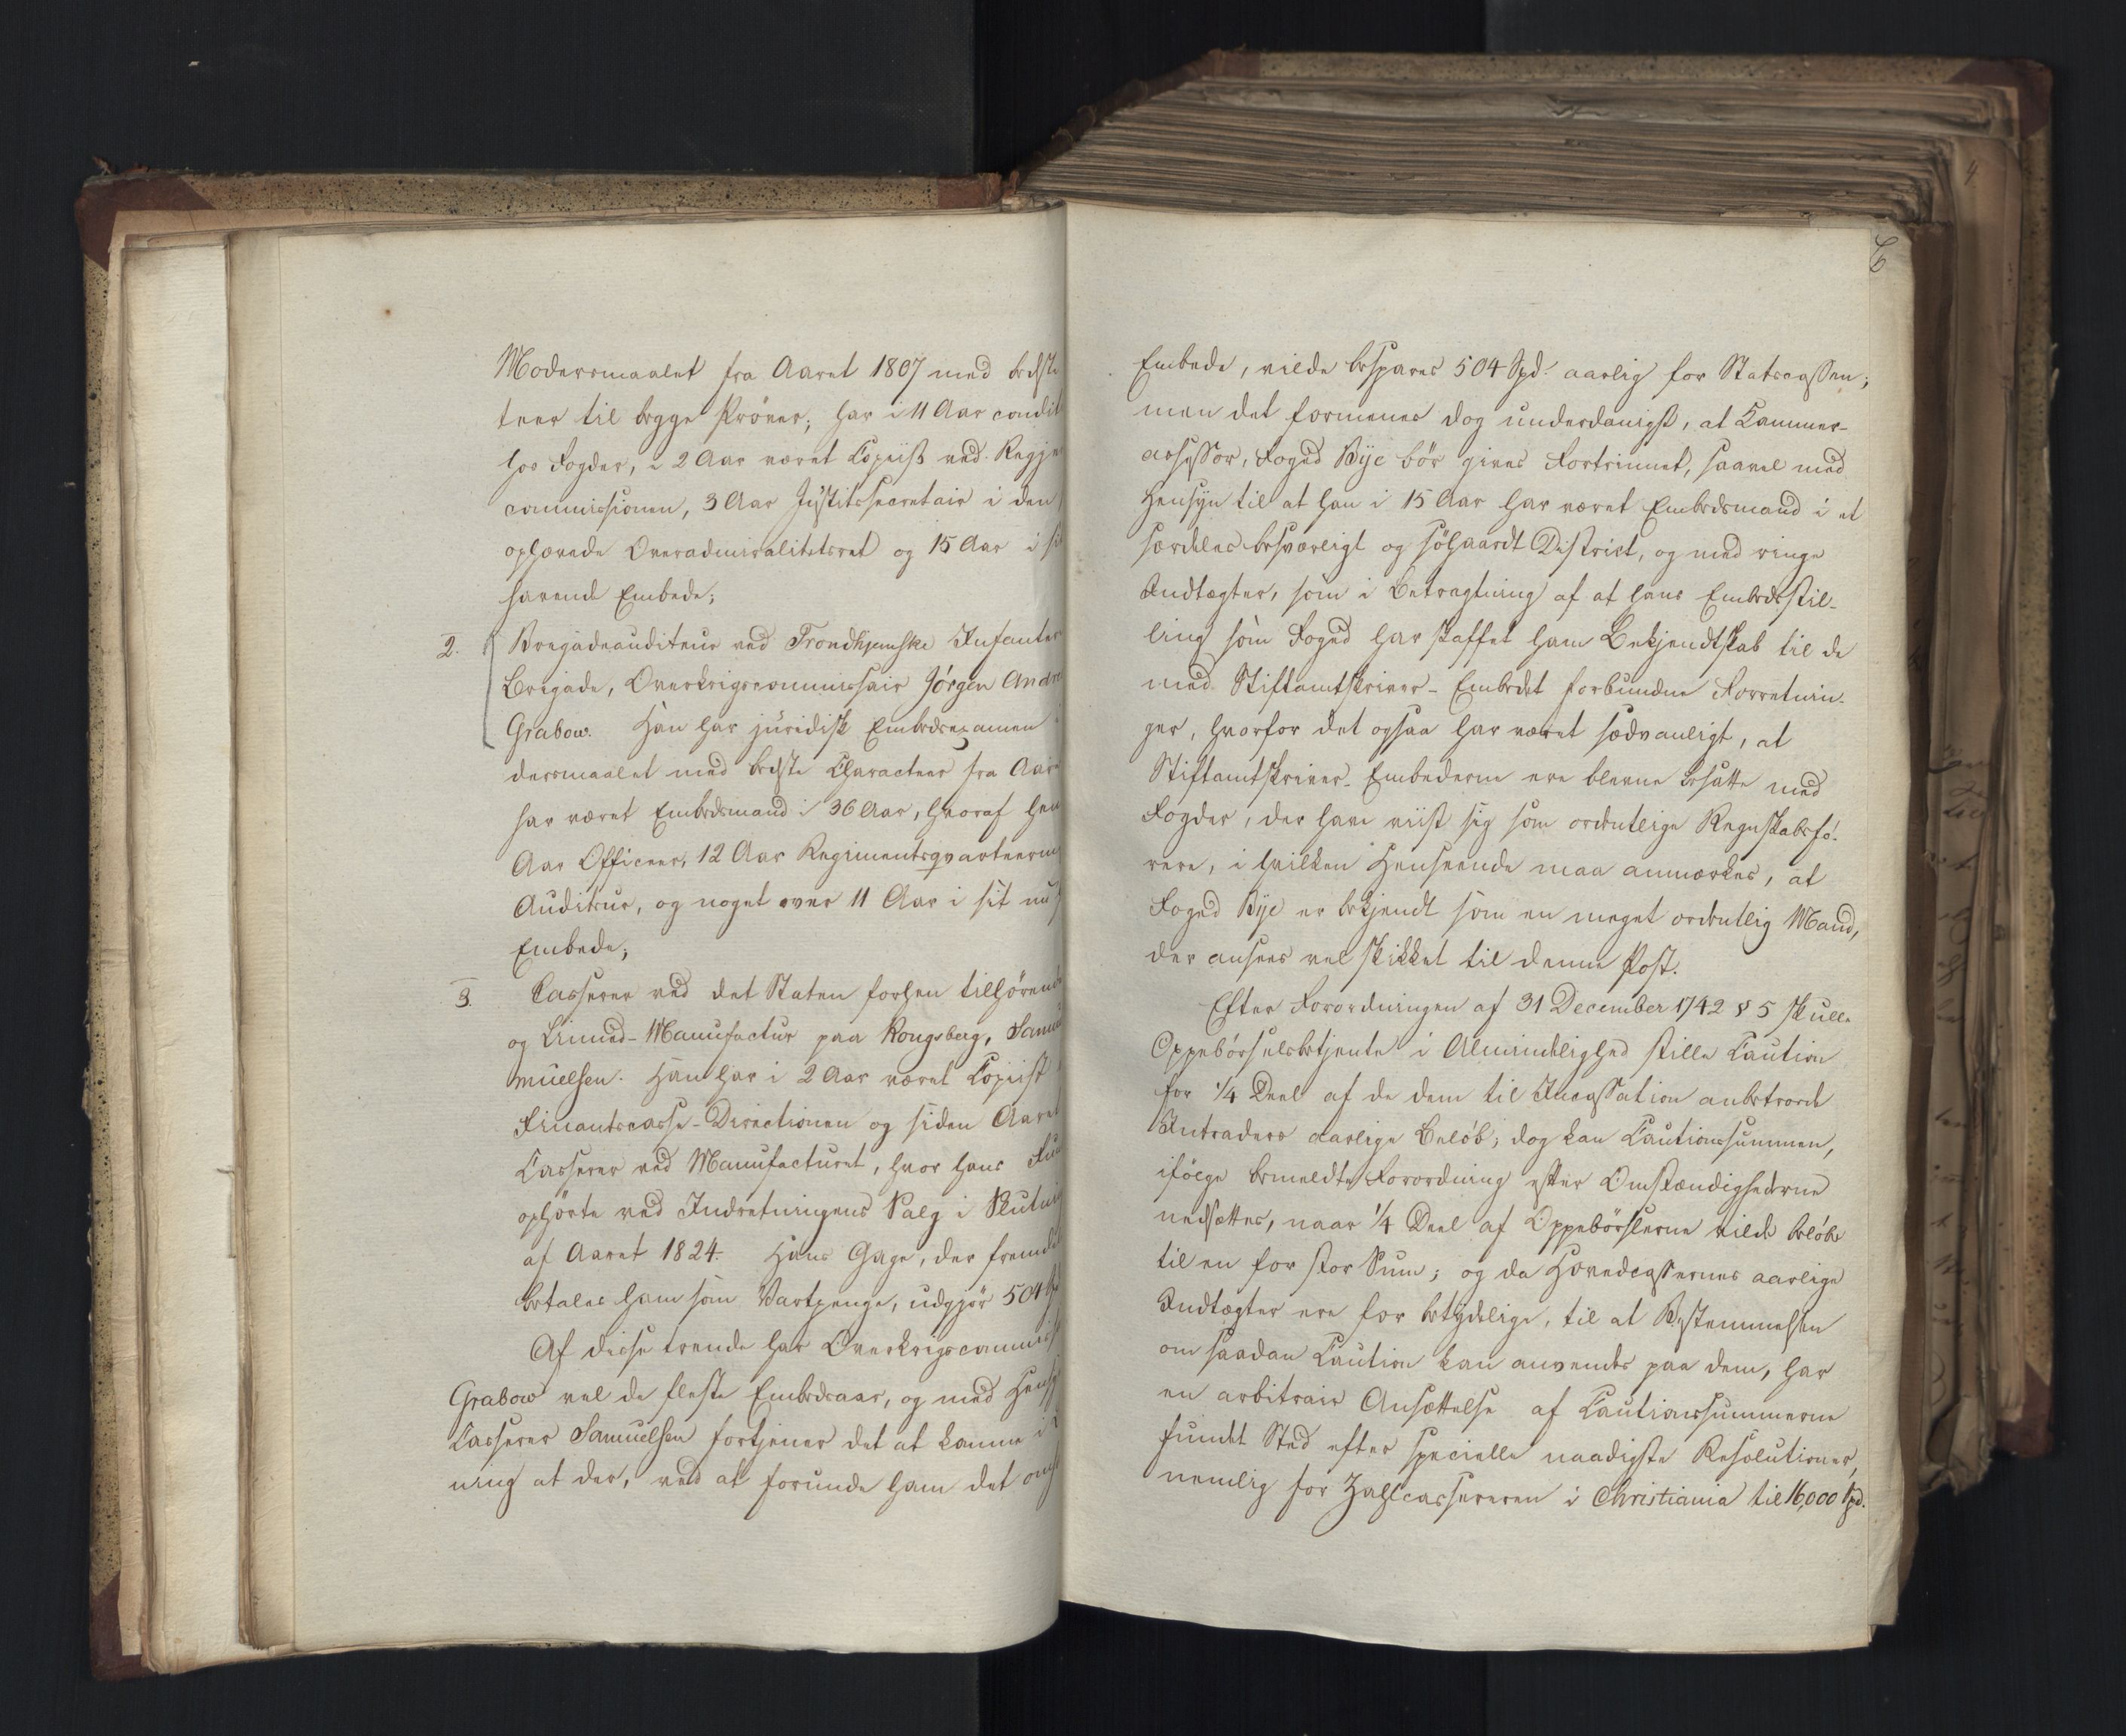 Modersmaalet fra Aaret 1807 med bedste
teer til begge Prøver; har i 11 Aar condit
hos Fogder, i 2 Aar været Copiist ved Regje
commissionen, 3 Aar Justitssecretair i den
ophævede Overadmiralitetsret og 15 Aar i si
havende Embede;
2. Brigadeauditeur ved Trondhjemske Infanter
Brigade, Overkrigscommissair Jörgen Andre
Grabow. Han har juridisk Embedsexamen
dersmaalet med bedste Characteer fra Aar
har været Embedsmand i 36 Aar, hvoraf hen
Aar Officeer, 12 Aar Regimentsqvarteerm
Auditeur, og noget over 11 Aar i sit nu
Embede;
3. Casserer ved det Staten forhen tilhörende
og Linned-Manufactur paa Kongsberg, Samu
muelsen. Han har i 2 Aar været Copiist
Finantscasse-Directionen og siden Aaret
Casserer ved Manufacturet, hvor hans Fun
ophörte ved Indretningens Salg i Slutni
af Aaret 1824. Hans Gage, der fremde
betales ham som Vartpenge, udgjör 504 Sp
Af disse trende har Overkrigscommiss
Grabow vel de fleste Embedsaar, og med Hensy
Casserer Samuelsen fortjener det at komme i
ning at der, ved at forunde ham det oms
6
Embede, vilde bespares 504 Spd. aarlig for Statscassen;
men det formenes dog underdanigst, at Kammer-
assessor, Foged Bye bör gives Fortrinnet, saavel med
Hensyn til at han i 15 Aar har været Embedsmand i et
særdeles besværligt og vidtløftigt District, og med ringe
Indtægter, som i Betragtning af at hans Embedsstil-
ling som Foged har skaffet ham Bekjendtskab til de
med Stiftamtskriver-Embedet forbundne Forretnin-
ger, hvorfor det ogsaa har været sædvanligt, at
Stiftamtskriver-Embederne ere blevne besatte med
Fogder, der have viist sig som ordentlige Regnskabsfö-
rere, i hvilken Henseende maa anmærkes, at
Foged Bye er bekjendt som en meget ordentlig Mand,
der ansees vel skikket til denne Post.
Efter Forordningen af 31 December 1742 § 5 skulle
Oppebörselsbetjente i Almindelighed stille Caution
for 1/4 Deel af de dem til Incassation anbetroede
Intraders aarlige Belöb; dog kan Cautionssummen,
ifölge bemeldte Forordning efter Omstændighederne
nedsættes, naar 1/4 Deel af Oppebörslerne vilde belöbe
til en for stor Sum; og da Hovedcassernes aarlige
Indtægter ere for betydelige, til at Bestemmelsen
om saadan Caution kan anvendes paa dem, har
en arbitrair Ansættelse af Cautionssummerne
fundet Sted efter specielle naadigste Resolutioner,
nemlig for Zahlcassereren i Christiania til 16,000 Spd.